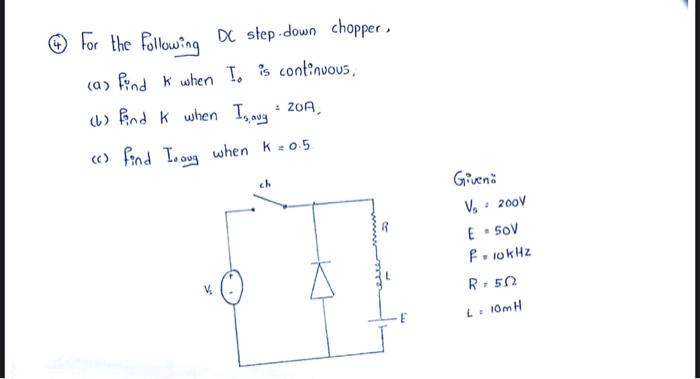 ④ For the following DC step-down chopper,
(a) find K when I₀ is continuous,
(b) find K when Is,avg = 20A,
(c) find Io,avg when K = 0.5
ch
Given:
Vs = 200V
E = 50V
f = 10kHz
R = 5Ω
L = 10mH
R
L
Vs
+
-
E